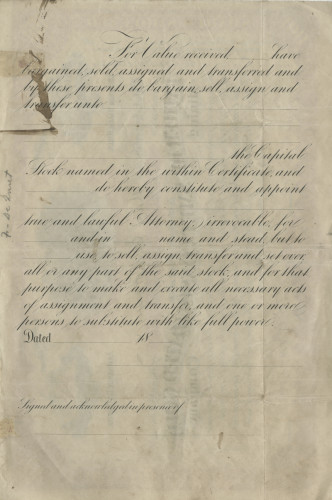 For Value received have
bargained, sold, assigned and transferred and
by these presents do bargain, sell, assign and
transfer unto
the Capital
Stock named in the within Certificate, and
do hereby constitute and appoint
true and lawful Attorney, irrevocable, for
and in name and stead, but to
use, to sell, assign, transfer and set over,
all or any part of the said stock, and for that
purpose to make and execute all necessary acts
of assignment and transfer, and one or more
persons to substitute with like full power.
Dated 18
Signed and acknowledged in presence of